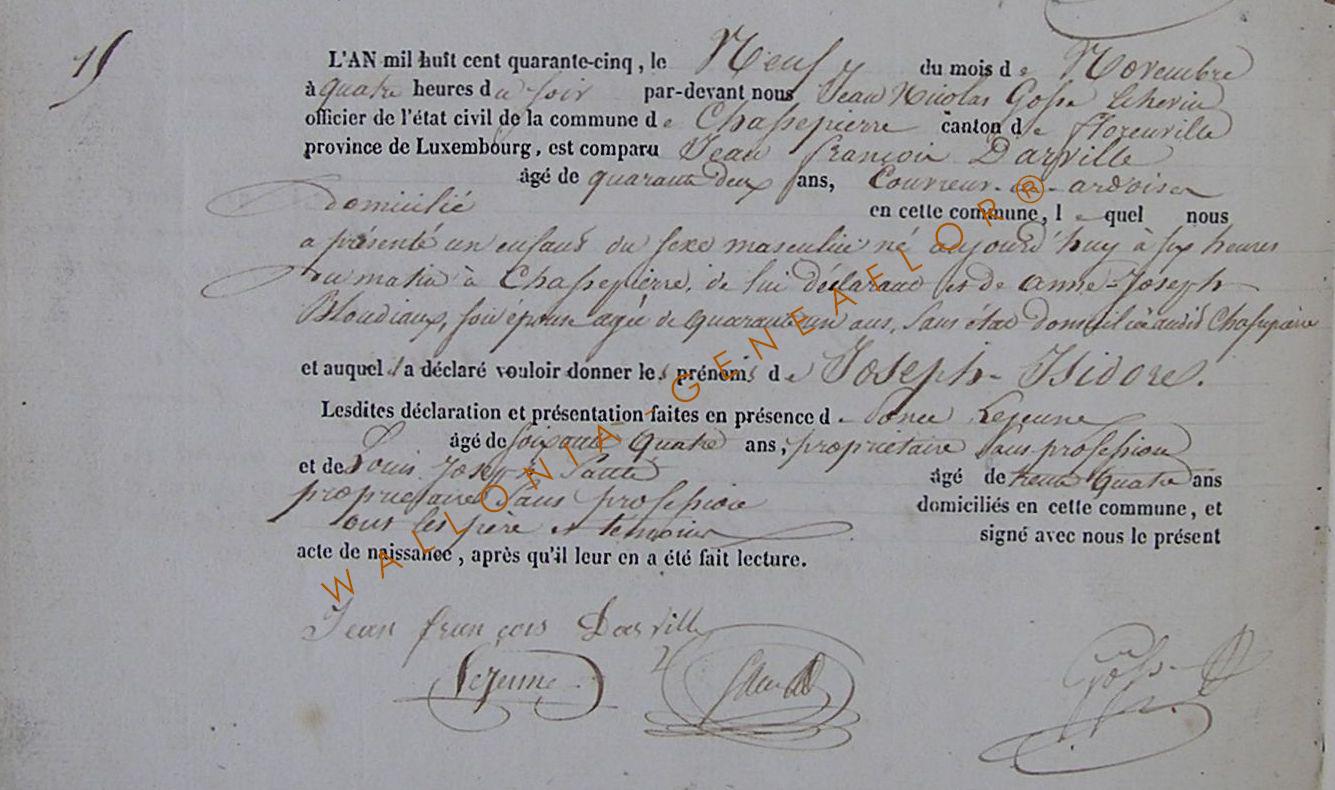 15
L'AN mil huit cent quarante-cinq, le Neuf du mois de Novembre
à quatre heures du soir par-devant nous Jean Nicolas Gosse Echevin
officier de l'état civil de la commune de Chassepierre canton de florenville
province de Luxembourg, est comparu Jean françois Darville
âgé de quarante deux ans, Couvreur en ardoises
domicilié en cette commune, lequel nous
a présenté un enfant du sexe masculin né aujourd'huy à six heures
du matin à Chassepierre, de lui déclarant et de anne-Joseph
Bloudiaux, son épouse agée de quarante un ans, sans état domiciliée audit Chassepierre
et auquel il a déclaré vouloir donner les prénoms de Joseph-Isidore.
Lesdites déclaration et présentation faites en présence de Ponce Lejeune
âgé de soixante quatre ans, propriétaire sans profession
et de Louis Joseph âgé de trente quatre ans
propriétaire sans profession domiciliés en cette commune, et
tous les père et témoins signé avec nous le présent
acte de naissance, après qu'il leur en a été fait lecture.
Jean françois Darville
Lejeune
Gosse
WALLONIA-GENEAELOR®